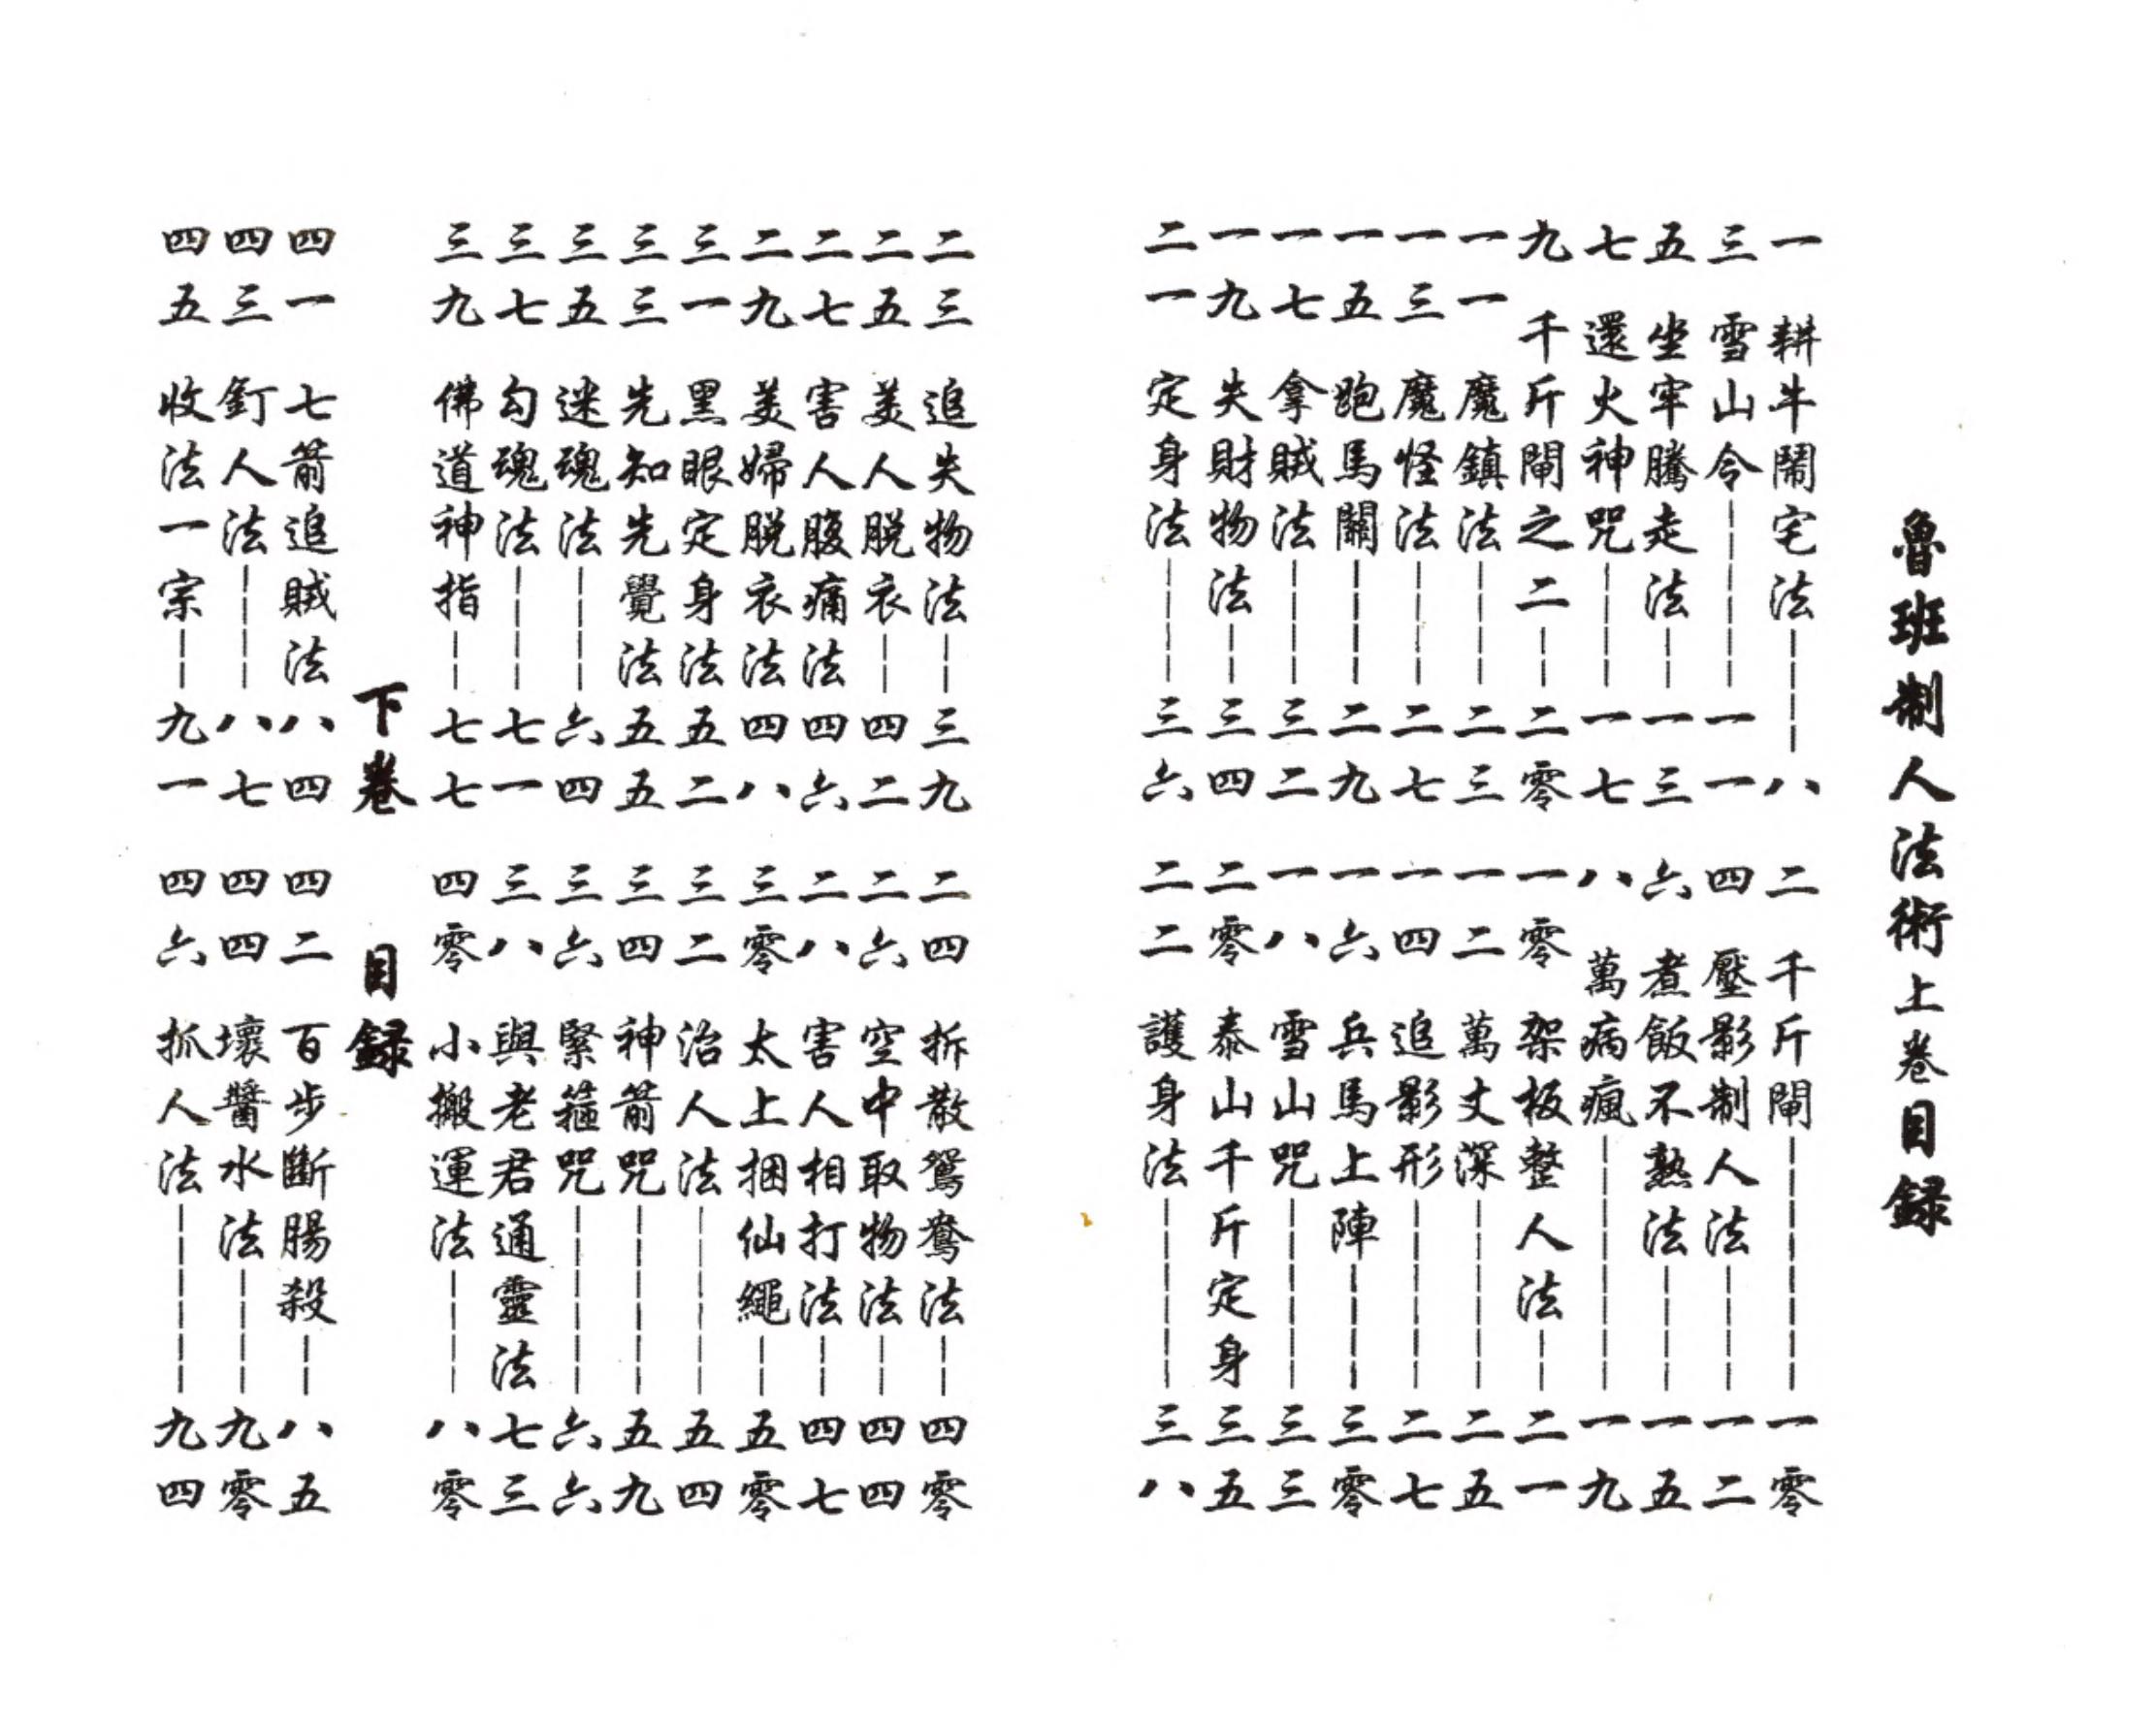 魯班制人法術上卷目録
一 耕牛鬧宅法 八
二 千斤閘 一零
三 雪山令 一一
四 壓影制人法 一二
五 坐牢騰走法 一三
六 煮飯不熟法 一五
七 還火神咒 一七
八 萬病瘋 一九
九 千斤閘之二 二零
一零 架板整人法 二一
一一 魔鎮法 二三
一二 萬丈深 二五
一三 魔怪法 二七
一四 追影形 二七
一五 跑馬關 二九
一六 兵馬上陣 三零
一七 拿賊法 三二
一八 雪山咒 三三
一九 失財物法 三四
二零 泰山千斤定身 三五
二一 定身法 三六
二二 護身法 三八
二三 追失物法 三九
二四 拆散鴛鴦法 四零
二五 美人脱衣 四二
二六 空中取物法 四四
二七 害人腹痛法 四六
二八 害人相打法 四七
二九 美婦脱衣法 四八
三零 太上捆仙繩 五零
三一 黑眼定身法 五二
三二 治人法 五四
三三 先知先覺法 五五
三四 神箭咒 五九
三五 迷魂法 六四
三六 緊箍咒 六六
三七 勾魂法 七一
三八 與老君通靈法 七三
三九 佛道神指 七七
四零 小搬運法 八零
下卷 目録
四一 七箭追賊法 八四
四二 百步斷腸殺 八五
四三 釘人法 八七
四四 壞醬水法 九零
四五 收法一宗 九一
四六 抓人法 九四